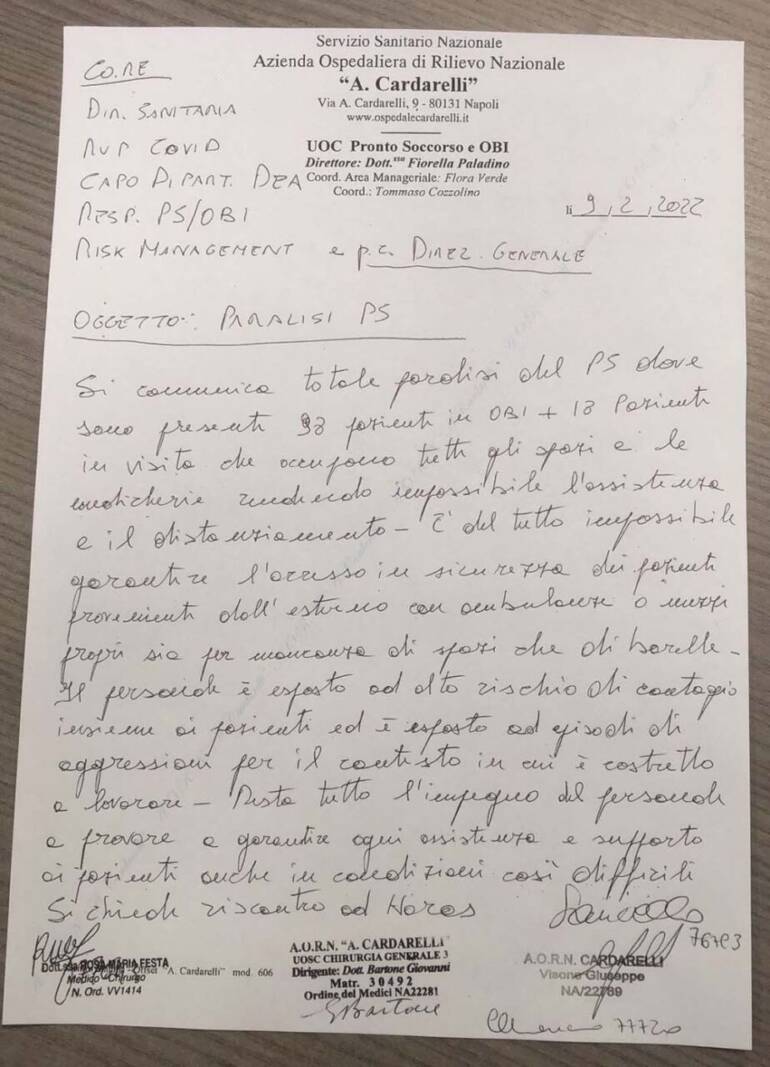 Servizio Sanitario Nazionale
Azienda Ospedaliera di Rilievo Nazionale
“A. Cardarelli”
Via A. Cardarelli, 9 - 80131 Napoli
www.ospedalecardarelli.it
UOC Pronto Soccorso e OBI
Direttore: Dott.ssa Fiorella Paladino
Coord. Area Manageriale: Flora Verde
Coord.: Tommaso Cozzolino
li 9,2,2022
CO.RE
DIR. SANITARIA
RUP COVID
CAPO DIPART. DEA
RESP. PS/OBI
RISK MANAGEMENT e p.c. DIREZ. GENERALE
OGGETTO: PARALISI PS
Si comunica totale paralisi del PS dove
sono presenti 98 pazienti in OBI + 18 Pazienti
in visita che occupano tutti gli spazi e le
rendendo impossibile l'assistenza
e il distanziamento - E' del tutto impossibile
garantire l'accesso in sicurezza dei pazienti
provenienti dall'esterno con ambulanze o mezzi
propri sia per mancanza di spazi che di barelle -
Il personale è esposto ad alto rischio di contagio
insieme ai pazienti ed è esposto ad episodi di
aggressioni per il contesto in cui è costretto
a lavorare - Resta tutto l'impegno del personale
a provare a garantire ogni assistenza e supporto
ai pazienti anche in condizioni così difficili
Si chiede riscontro ad Horas
Dott.ssa ROSA MARIA FESTA
Medico Chirurgo
N. Ord. VV1414
"A. Cardarelli" mod. 606
A.O.R.N. “A. CARDARELLI”
UOSC CHIRURGIA GENERALE 3
Dirigente: Dott. Bartone Giovanni
Matr. 30492
Ordine dei Medici NA22281
GBartone
76703
A.O.R.N. CARDARELLI
Visone Giuseppe
NA/22789
77720